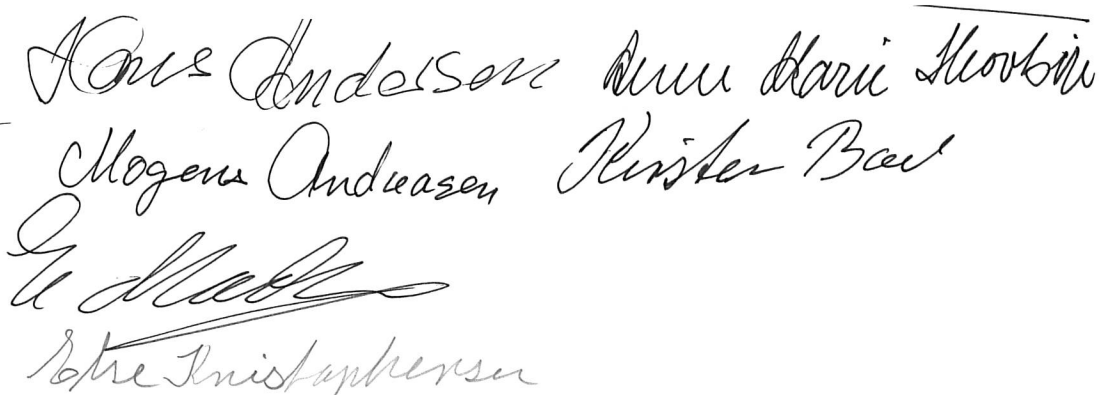 Hans Andersen Anne Marie Skovbin
Mogens Andreasen Kirsten Bael
Else Kristophensen